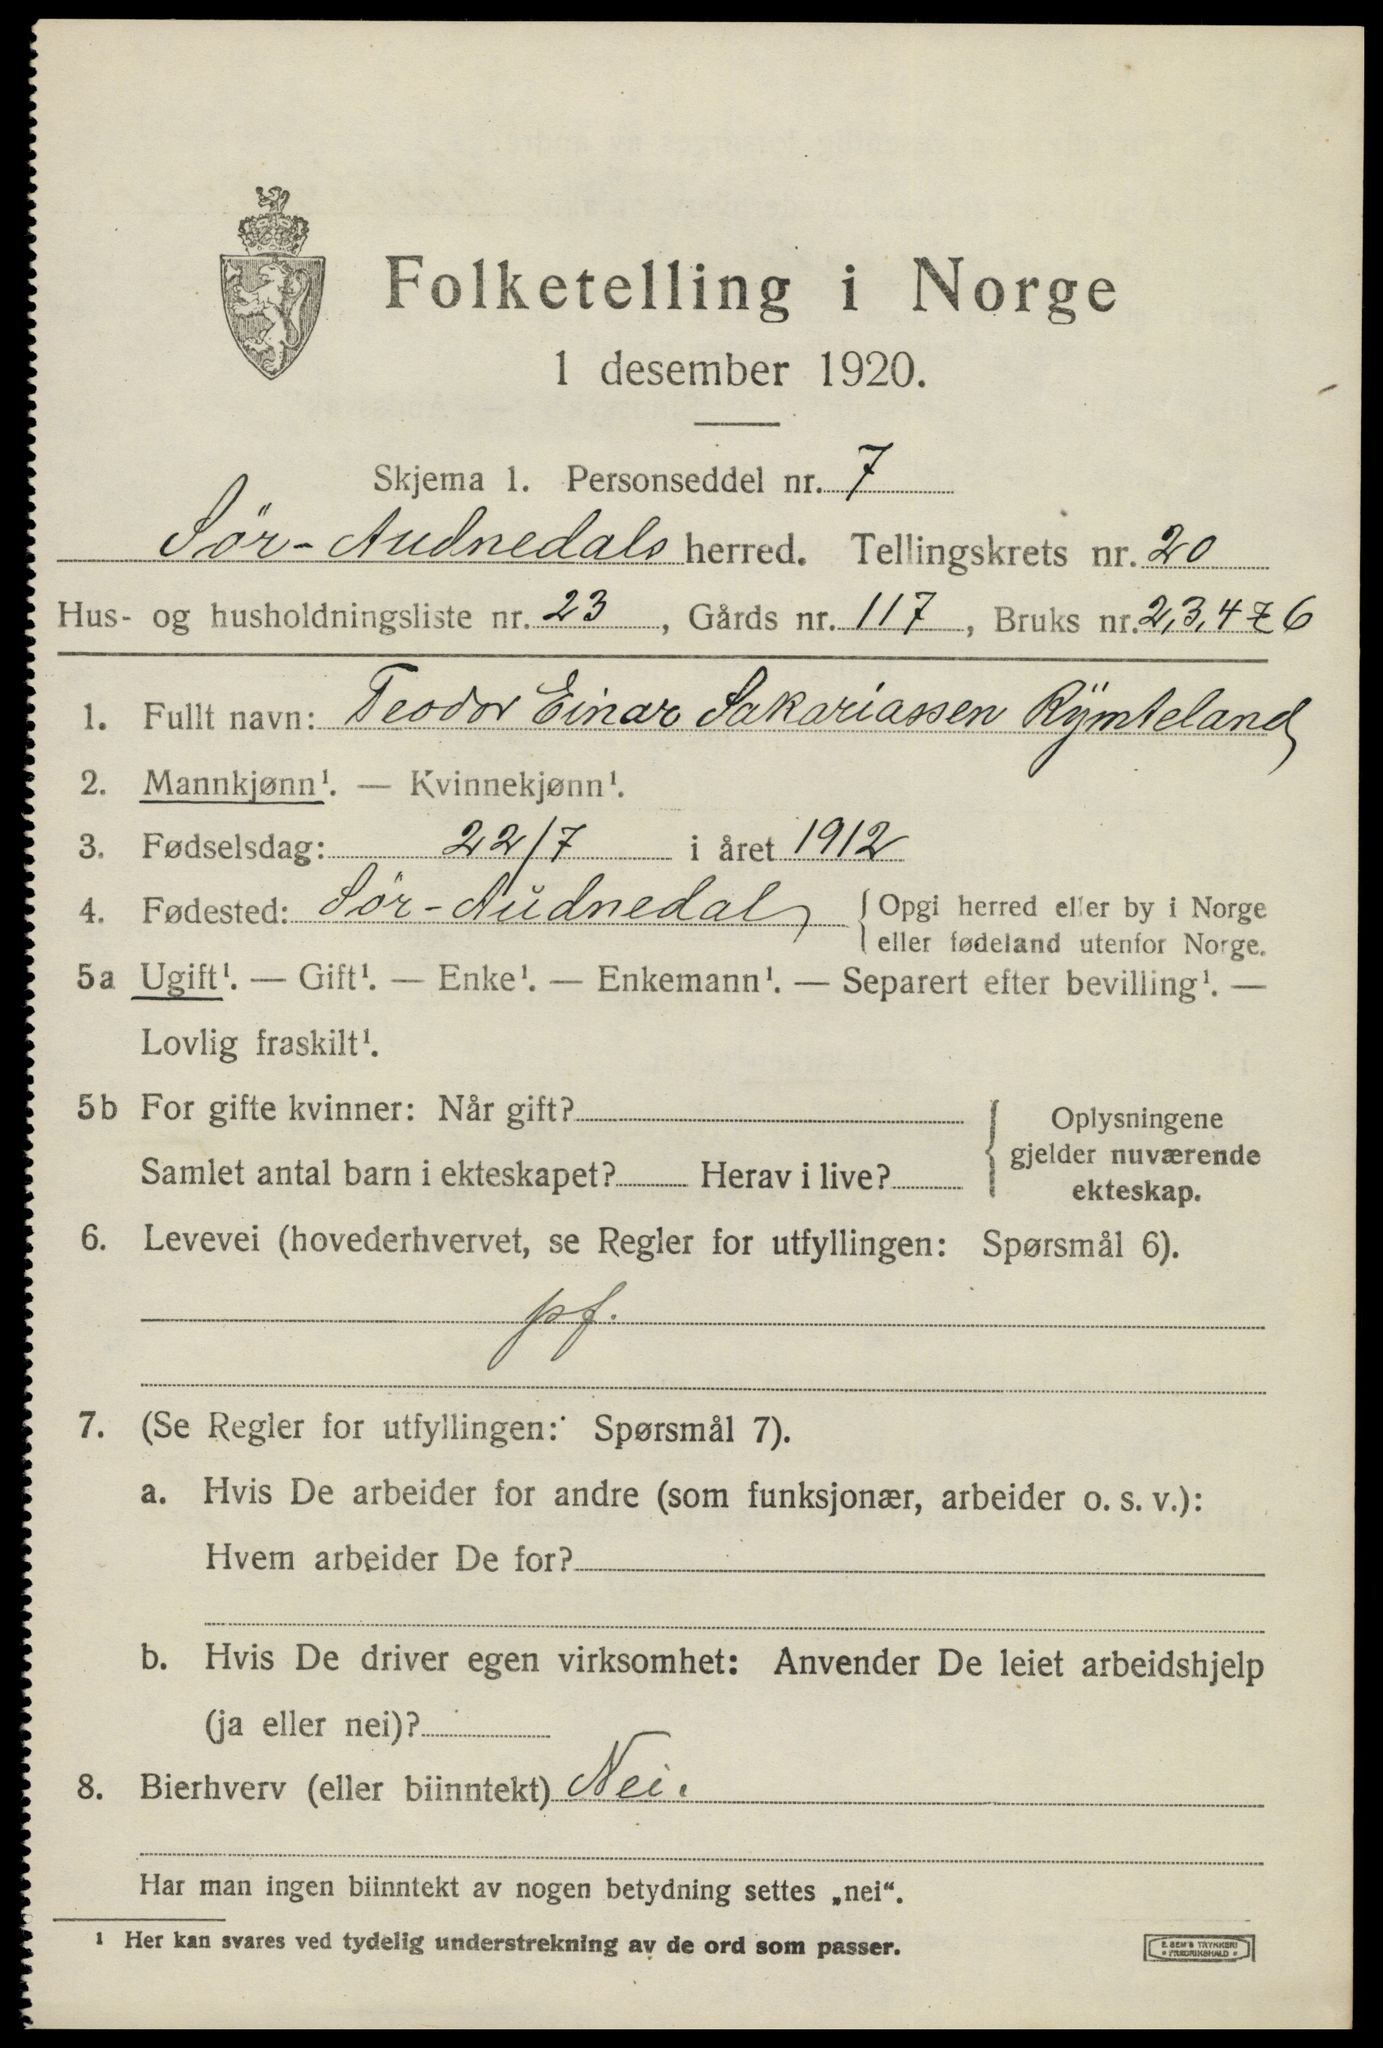 Folketelling i Norge
1 desember 1920.
Skjema 1. Personseddel nr. 7
Sör-Audnedals herred. Tellingskrets nr. 20
Hus- og husholdningsliste nr. 23, Gårds nr. 117, Bruks nr. 2,3,4 & 6
1. Fullt navn: Teodor Einar Sakariassen Rymteland
2. Mannkjønn¹. — Kvinnekjønn¹.
3. Fødselsdag: 22/7 i året 1912
4. Fødested: Sör-Audnedal { Opgi herred eller by i Norge
eller fødeland utenfor Norge.
5a Ugift¹. — Gift¹. — Enke¹. — Enkemann¹. — Separert efter bevilling¹. —
Lovlig fraskilt¹.
5b For gifte kvinner: Når gift?
Samlet antal barn i ekteskapet? Herav i live?
Oplysningene
gjelder nuværende
ekteskap.
6. Levevei (hovederhvervet, se Regler for utfyllingen: Spørsmål 6).
pf.
7. (Se Regler for utfyllingen: Spørsmål 7).
a. Hvis De arbeider for andre (som funksjonær, arbeider o. s. v.):
Hvem arbeider De for?
b. Hvis De driver egen virksomhet: Anvender De leiet arbeidshjelp
(ja eller nei)?
8. Bierhverv (eller biinntekt) Nei.
Har man ingen biinntekt av nogen betydning settes „nei“.
¹ Her kan svares ved tydelig understrekning av de ord som passer.
E. SEM'S TRYKKERI
• FREDRIKSHALD •